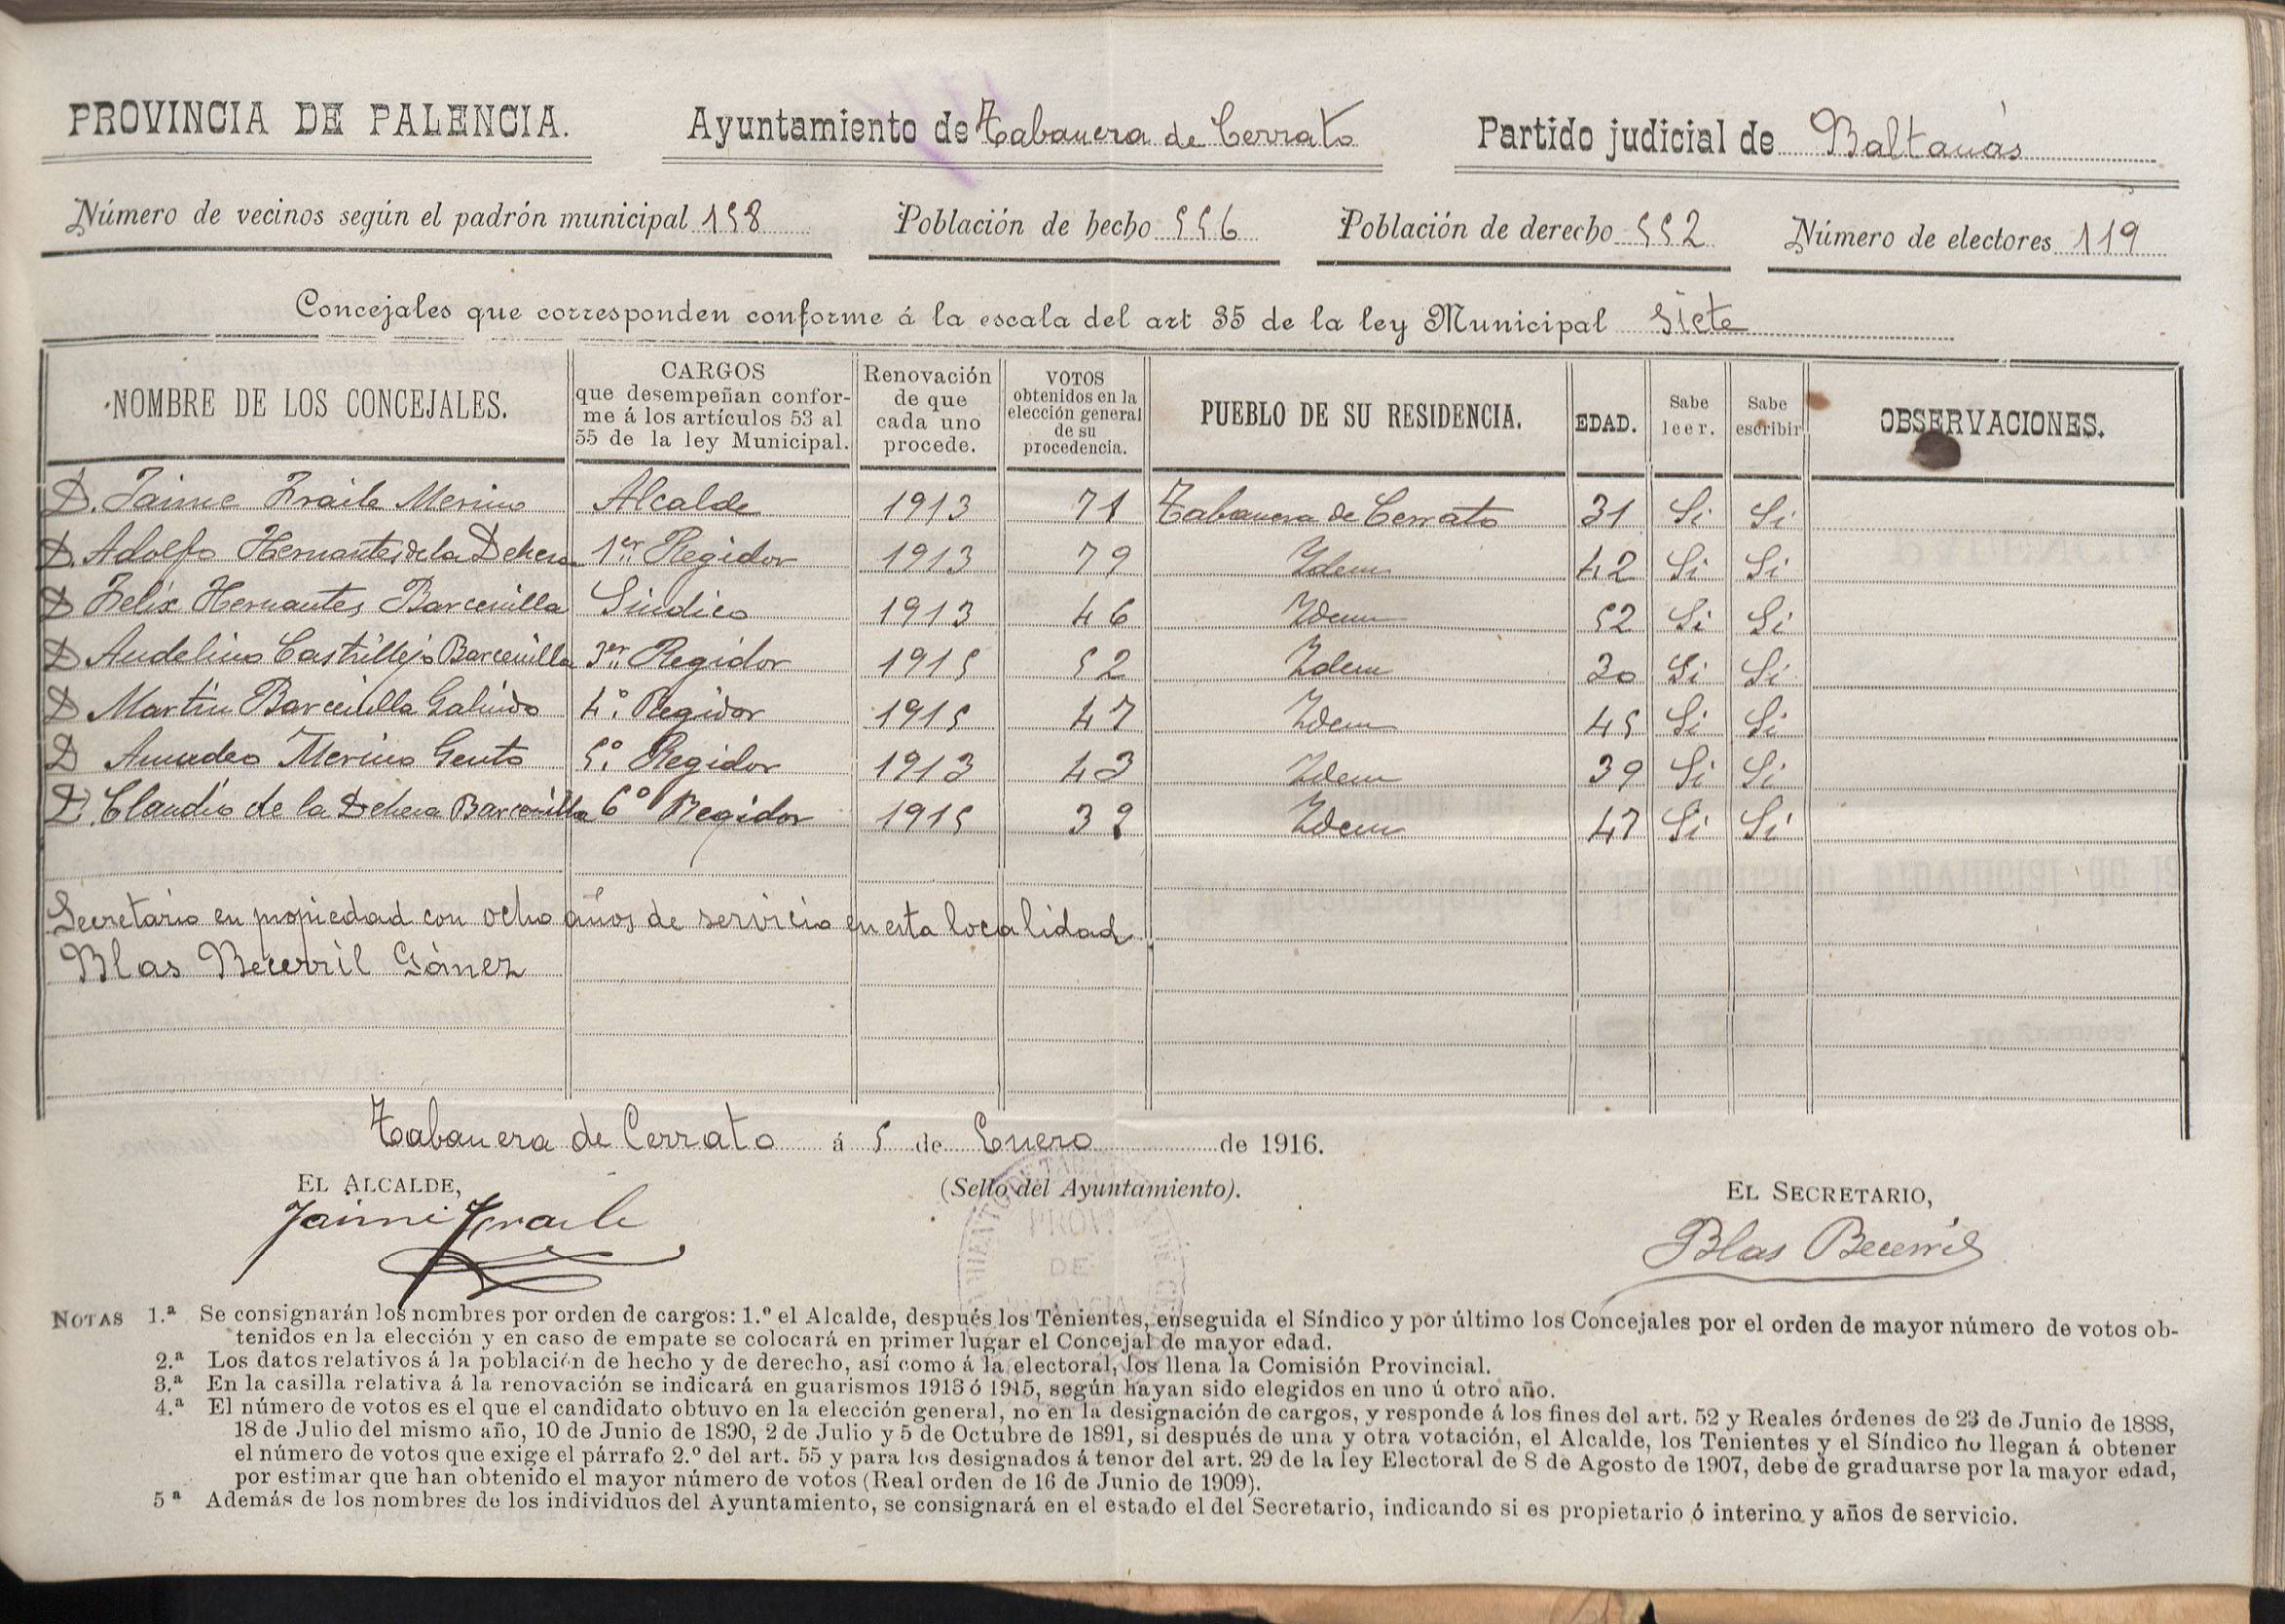 PROVINCIA DE PALENCIA. Ayuntamiento de Tabanera de Cerrato Partido judicial de Baltanás
Número de vecinos según el padrón municipal 158 Población de hecho 556 Población de derecho 552 Número de electores 119
Concejales que corresponden conforme á la escala del art 35 de la ley Municipal Siete
NOMBRE DE LOS CONCEJALES. CARGOS que desempeñan conforme á los artículos 53 al 55 de la ley Municipal. Renovación de que cada uno procede. VOTOS obtenidos en la elección general de su procedencia. PUEBLO DE SU RESIDENCIA. EDAD. Sabe leer. Sabe escribir OBSERVACIONES.
D. Jaime Fraile Merino Alcalde 1913 71 Tabanera de Cerrato 31 Si Si
D. Adolfo Hernantes de la Dehesa 1er Regidor 1913 79 Idem 42 Si Si
D Felix Hernantes Barcenilla Sindico 1913 46 Idem 52 Si Si
D Audelino Castrillejo Barcenilla 3er Regidor 1915 52 Idem 30 Si Si
D Martin Barcenilla Galindo 4º. Regidor 1915 47 Idem 45 Si Si
D Amadeo Merino Gento 5º. Regidor 1913 43 Idem 39 Si Si
D. Claudio de la Dehesa Barcenilla 6º Regidor 1915 39 Idem 47 Si Si
Secretario en propiedad con ocho años de servicio en esta localidad
Blas Becerril Gómez
Tabanera de Cerrato á 5 de Enero de 1916.
EL ALCALDE, (Sello del Ayuntamiento). EL SECRETARIO,
Jaime Fraile Blas Becerril
PROV.
DE
NOTAS 1.ª Se consignarán los nombres por orden de cargos: 1.º el Alcalde, después los Tenientes, enseguida el Síndico y por último los Concejales por el orden de mayor número de votos ob-
tenidos en la elección y en caso de empate se colocará en primer lugar el Concejal de mayor edad.
2.ª Los datos relativos á la población de hecho y de derecho, así como á la electoral, los llena la Comisión Provincial.
3.ª En la casilla relativa á la renovación se indicará en guarismos 1913 ó 1915, según hayan sido elegidos en uno ú otro año.
4.ª El número de votos es el que el candidato obtuvo en la elección general, no en la designación de cargos, y responde á los fines del art. 52 y Reales órdenes de 23 de Junio de 1888,
18 de Julio del mismo año, 10 de Junio de 1890, 2 de Julio y 5 de Octubre de 1891, si después de una y otra votación, el Alcalde, los Tenientes y el Síndico no llegan á obtener
el número de votos que exige el párrafo 2.º del art. 55 y para los designados á tenor del art. 29 de la ley Electoral de 8 de Agosto de 1907, debe de graduarse por la mayor edad,
por estimar que han obtenido el mayor número de votos (Real orden de 16 de Junio de 1909).
5ª Además de los nombres de los individuos del Ayuntamiento, se consignará en el estado el del Secretario, indicando si es propietario ó interino y años de servicio.